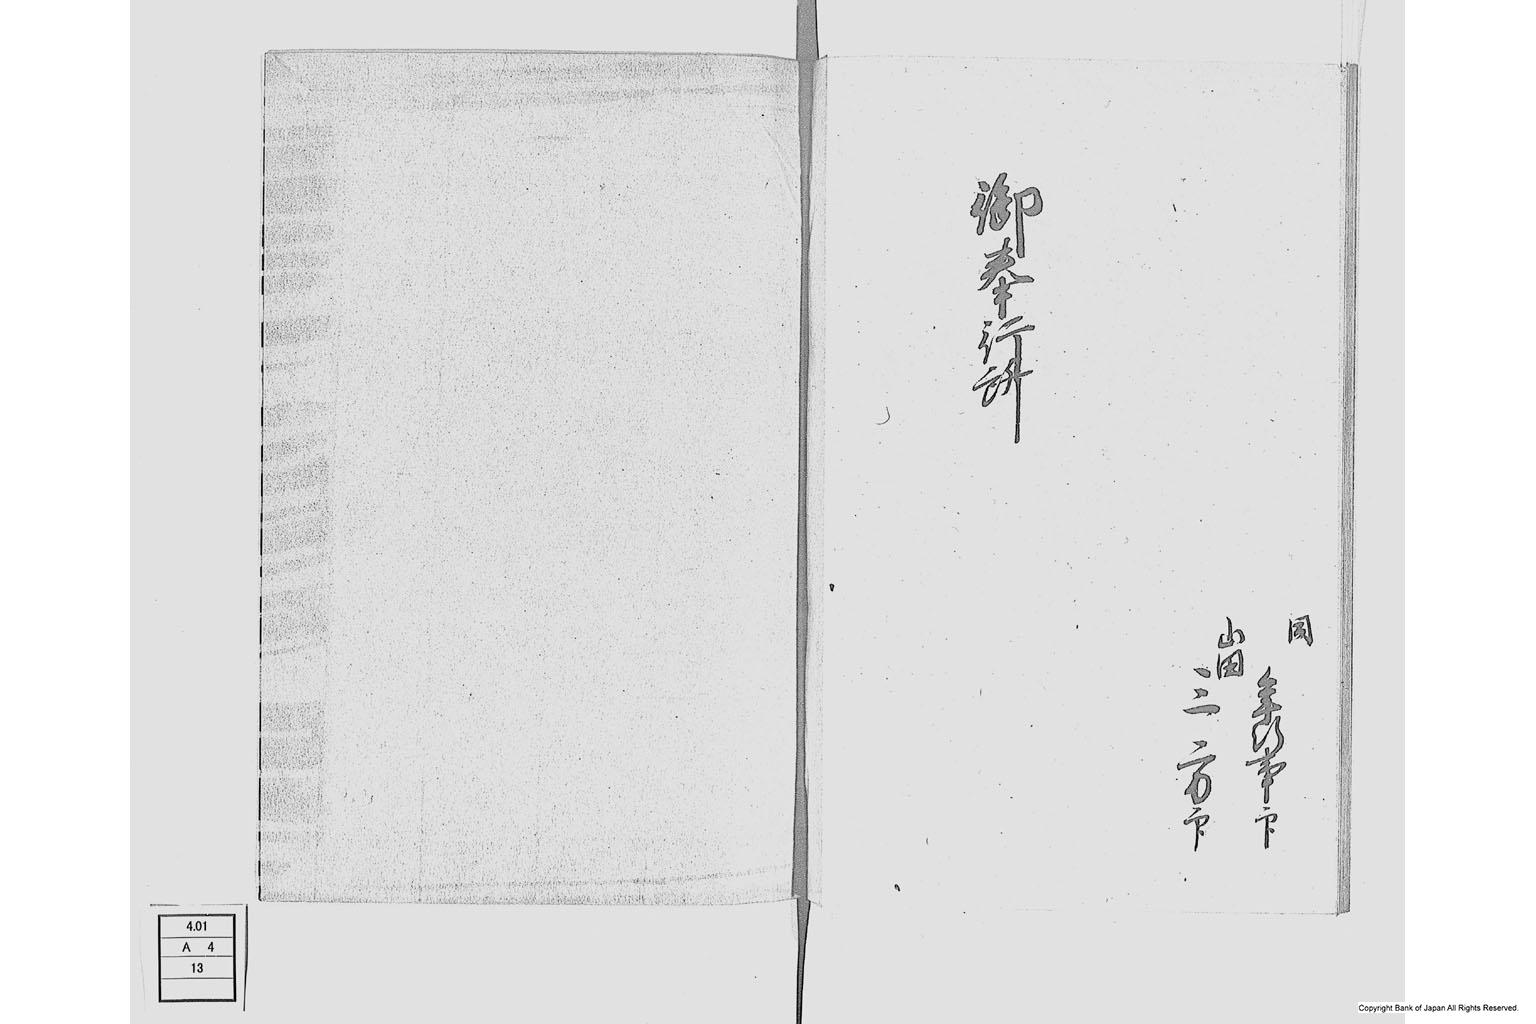 同
年行事印
山田
三方印
御奉行所
4.01
A 4
13
Copyright Bank of Japan All Rights Reserved.